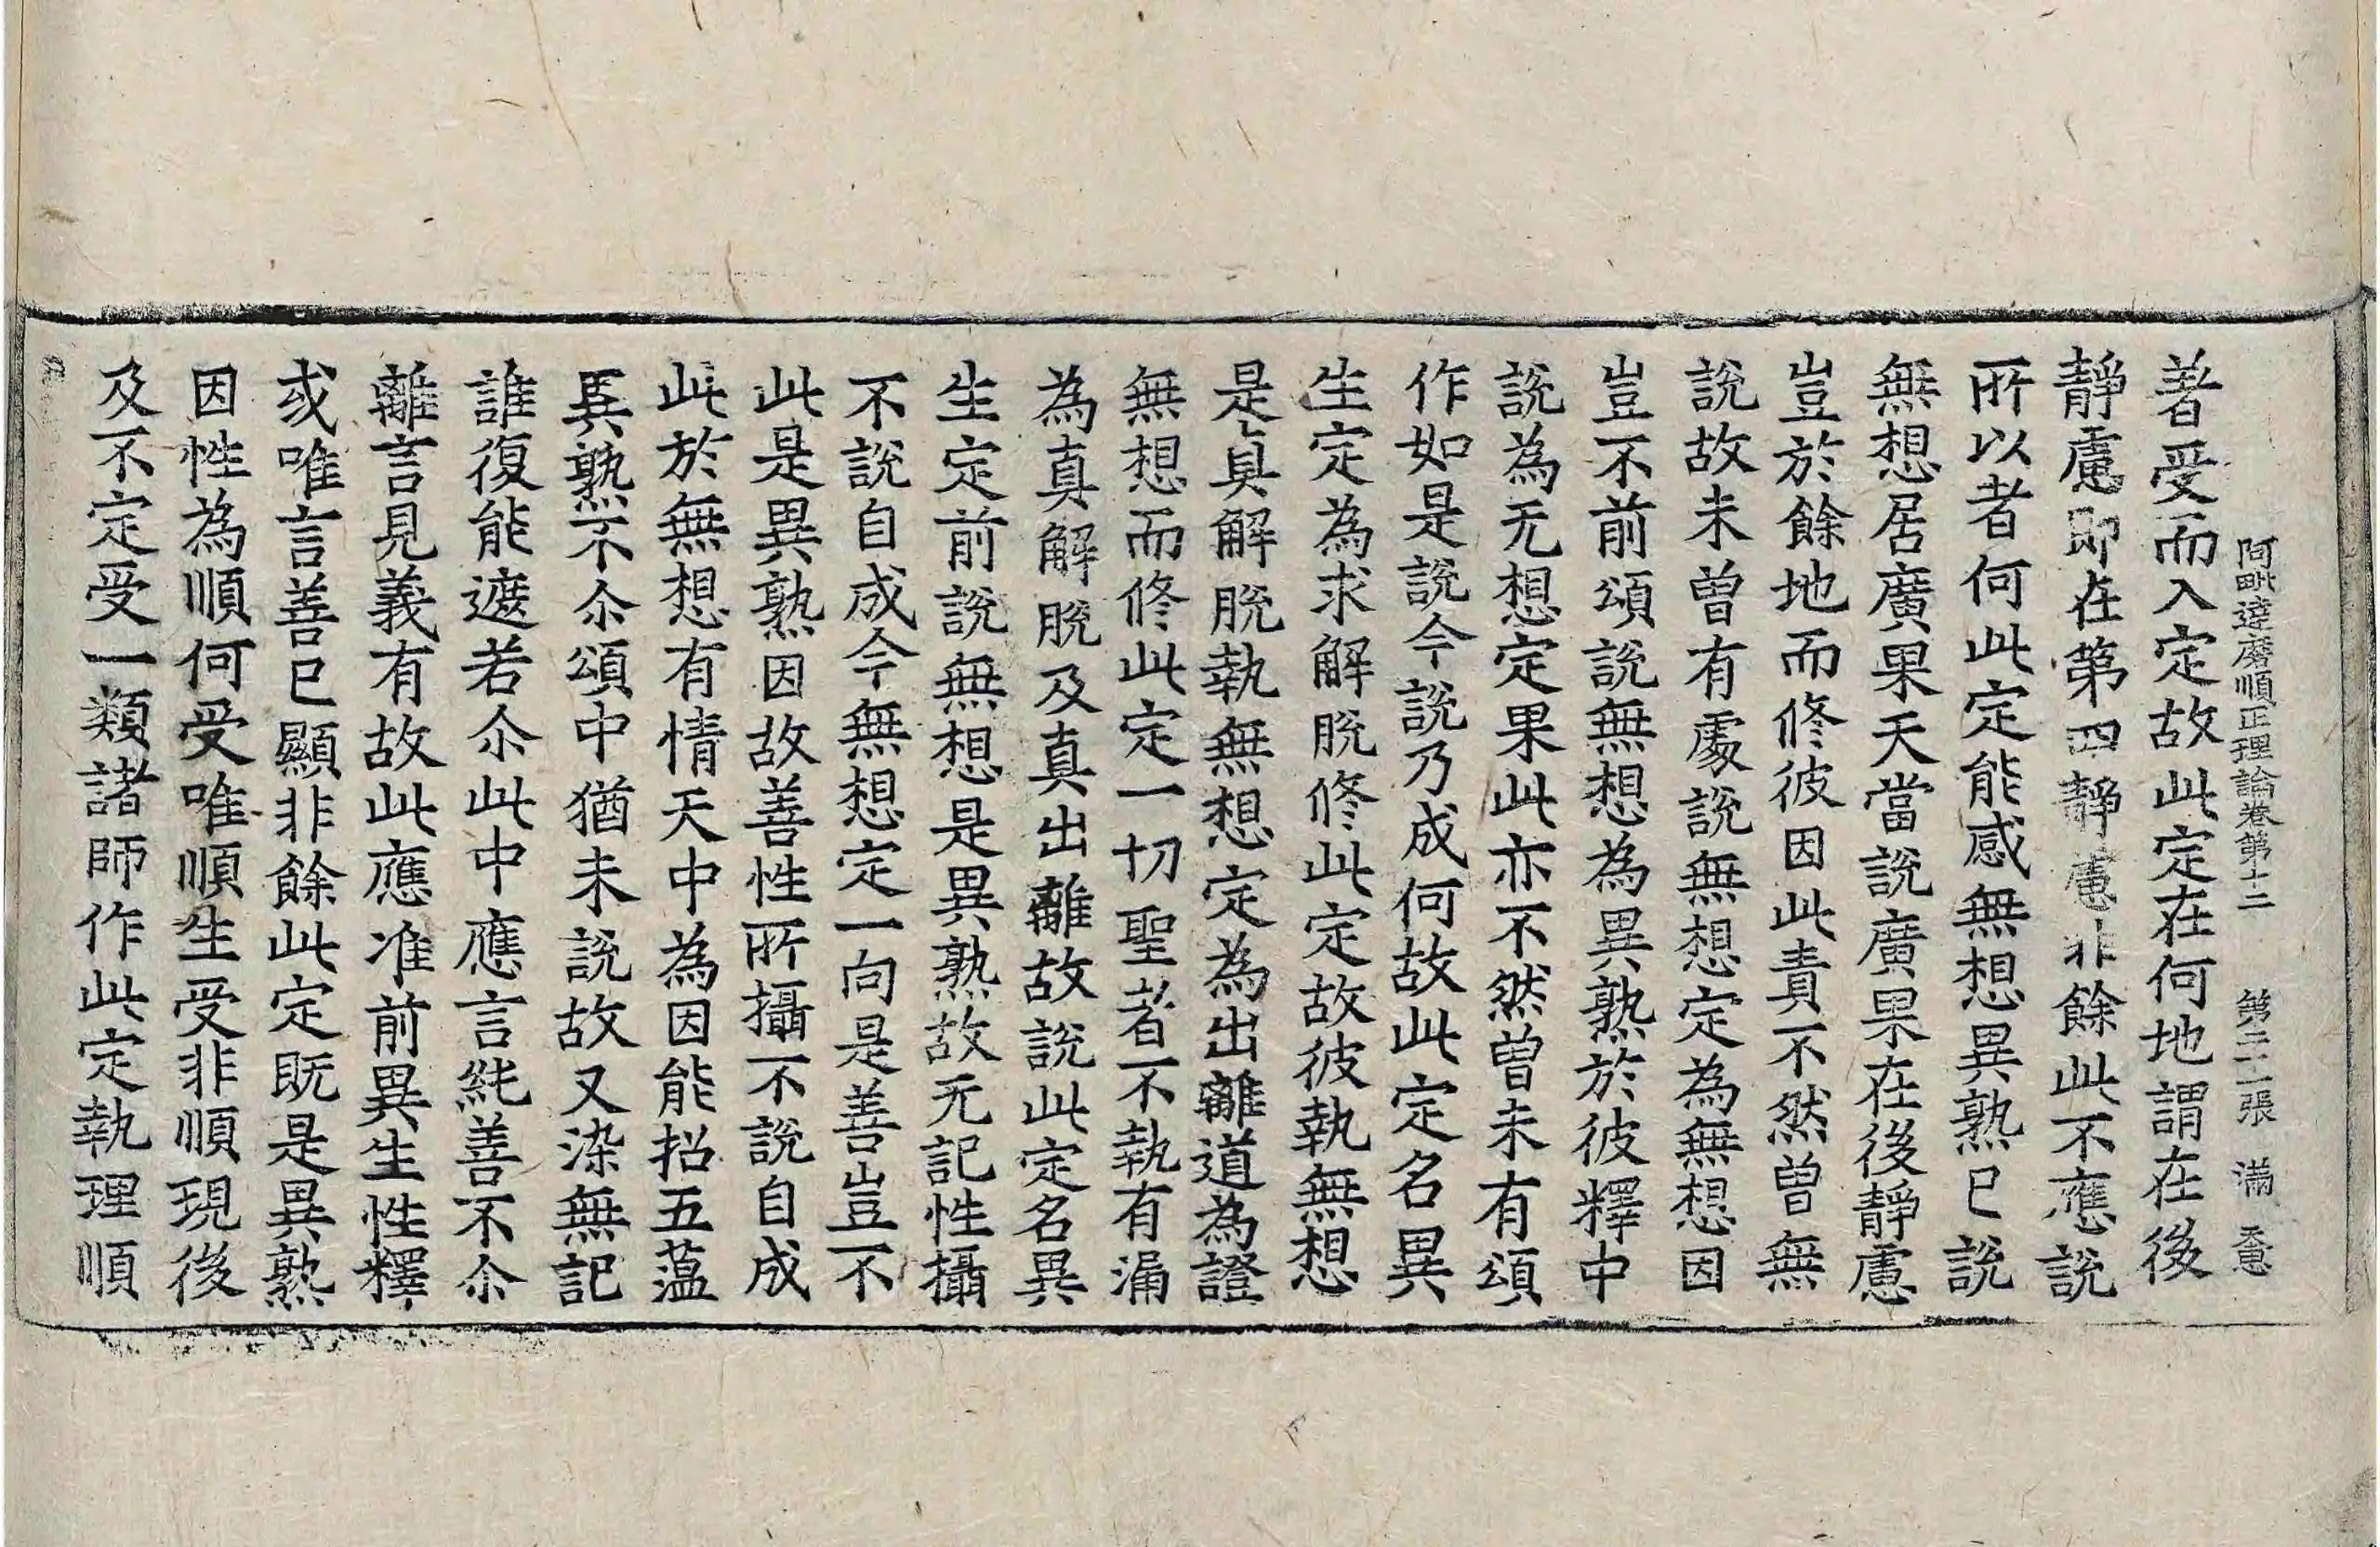 阿毗達磨順正理論卷第十二　第二十一張　滿
著受而入定故此定在何地謂在後
靜慮即在第四靜慮非餘此不應說
所以者何此定能感無想異熟已說
無想居廣果天當說廣果在後靜慮
豈於餘地而修彼因此責不然曾無
說故未曾有處說無想定為無想因
豈不前頌說無想為異熟於彼釋中
說為无想定果此亦不然曾未有頌
作如是說今說乃成何故此定名異
生定為求解脫修此定故彼執無想
是真解脫執無想定為出離道為證
無想而修此定一切聖者不執有漏
為真解脫及真出離故說此定名異
生定前說無想是異熟故无記性攝
不說自成今無想定一向是善豈不
此是異熟因故善性所攝不說自成
此於無想有情天中為因能招五蘊
異熟不尒頌中猶未說故又染無記
誰復能遮若尒此中應言純善不尒
離言見義有故此應准前異生性釋
或唯言善已顯非餘此定既是異熟
因性為順何受唯順生受非順現後
及不定受一類諸師作此定執理順